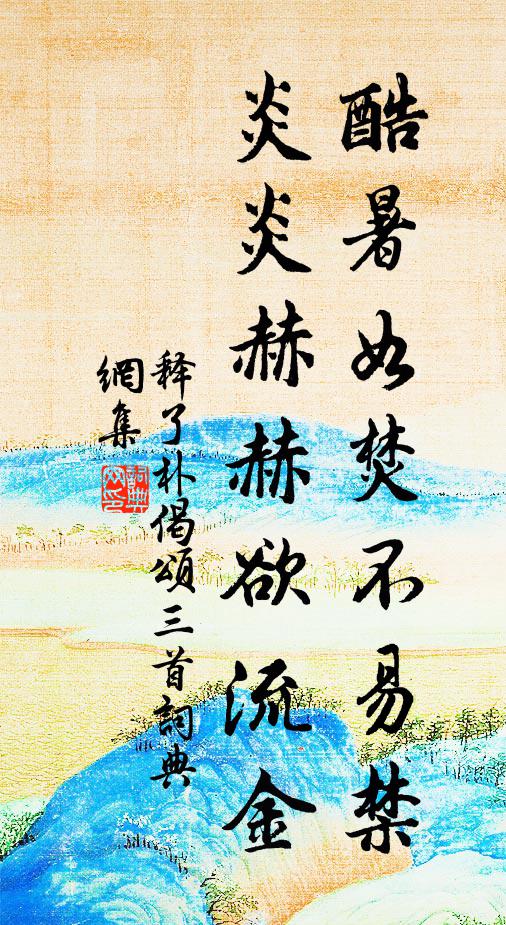 酷暑如焚不易禁
炎炎赫赫欲流金
释了朴偈頌三首詞典
網集